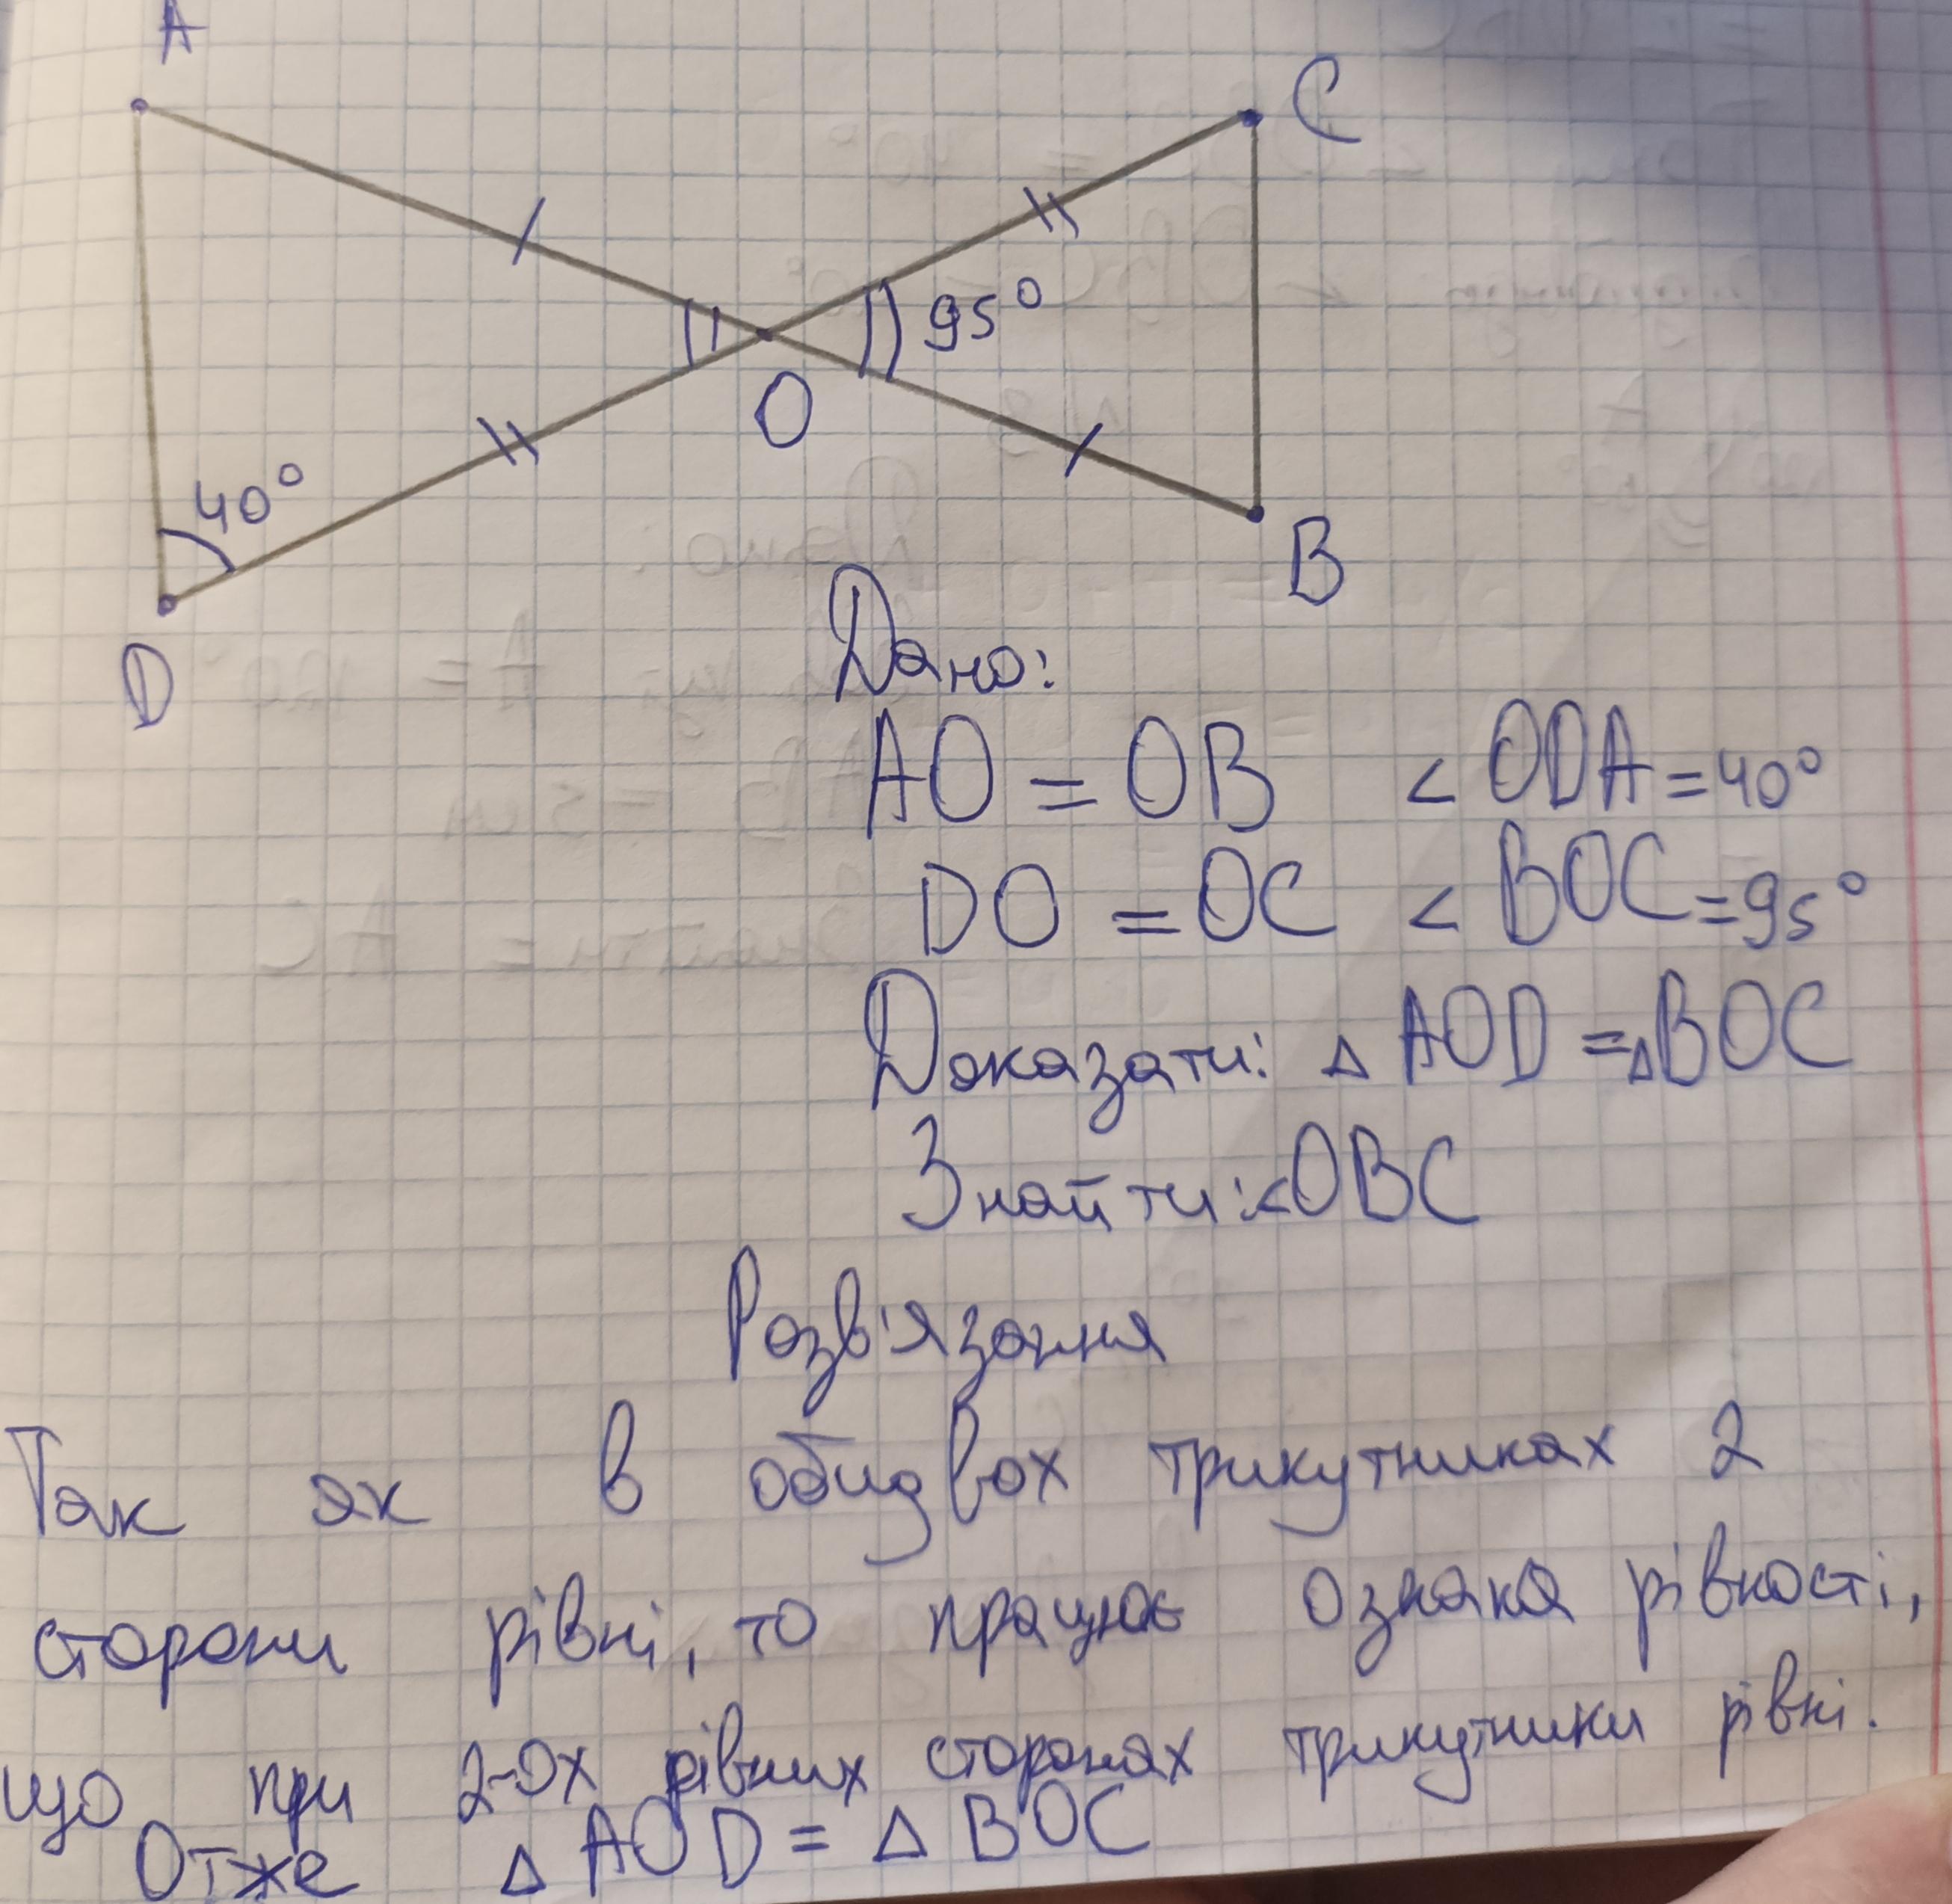 A
C
95°
O
40°
B
D
Дано:
AO = OB < ODA = 40°
DO = OC < BOC = 95°
Доказати: △ AOD = △ BOC
Знайти: < OBC
Розв'язання
Так як в обидвох трикутниках 2
сторони рівні, то працює ознака рівності,
що при 2-ох рівних сторонах трикутники рівні.
Отже △ AOD = △ BOC